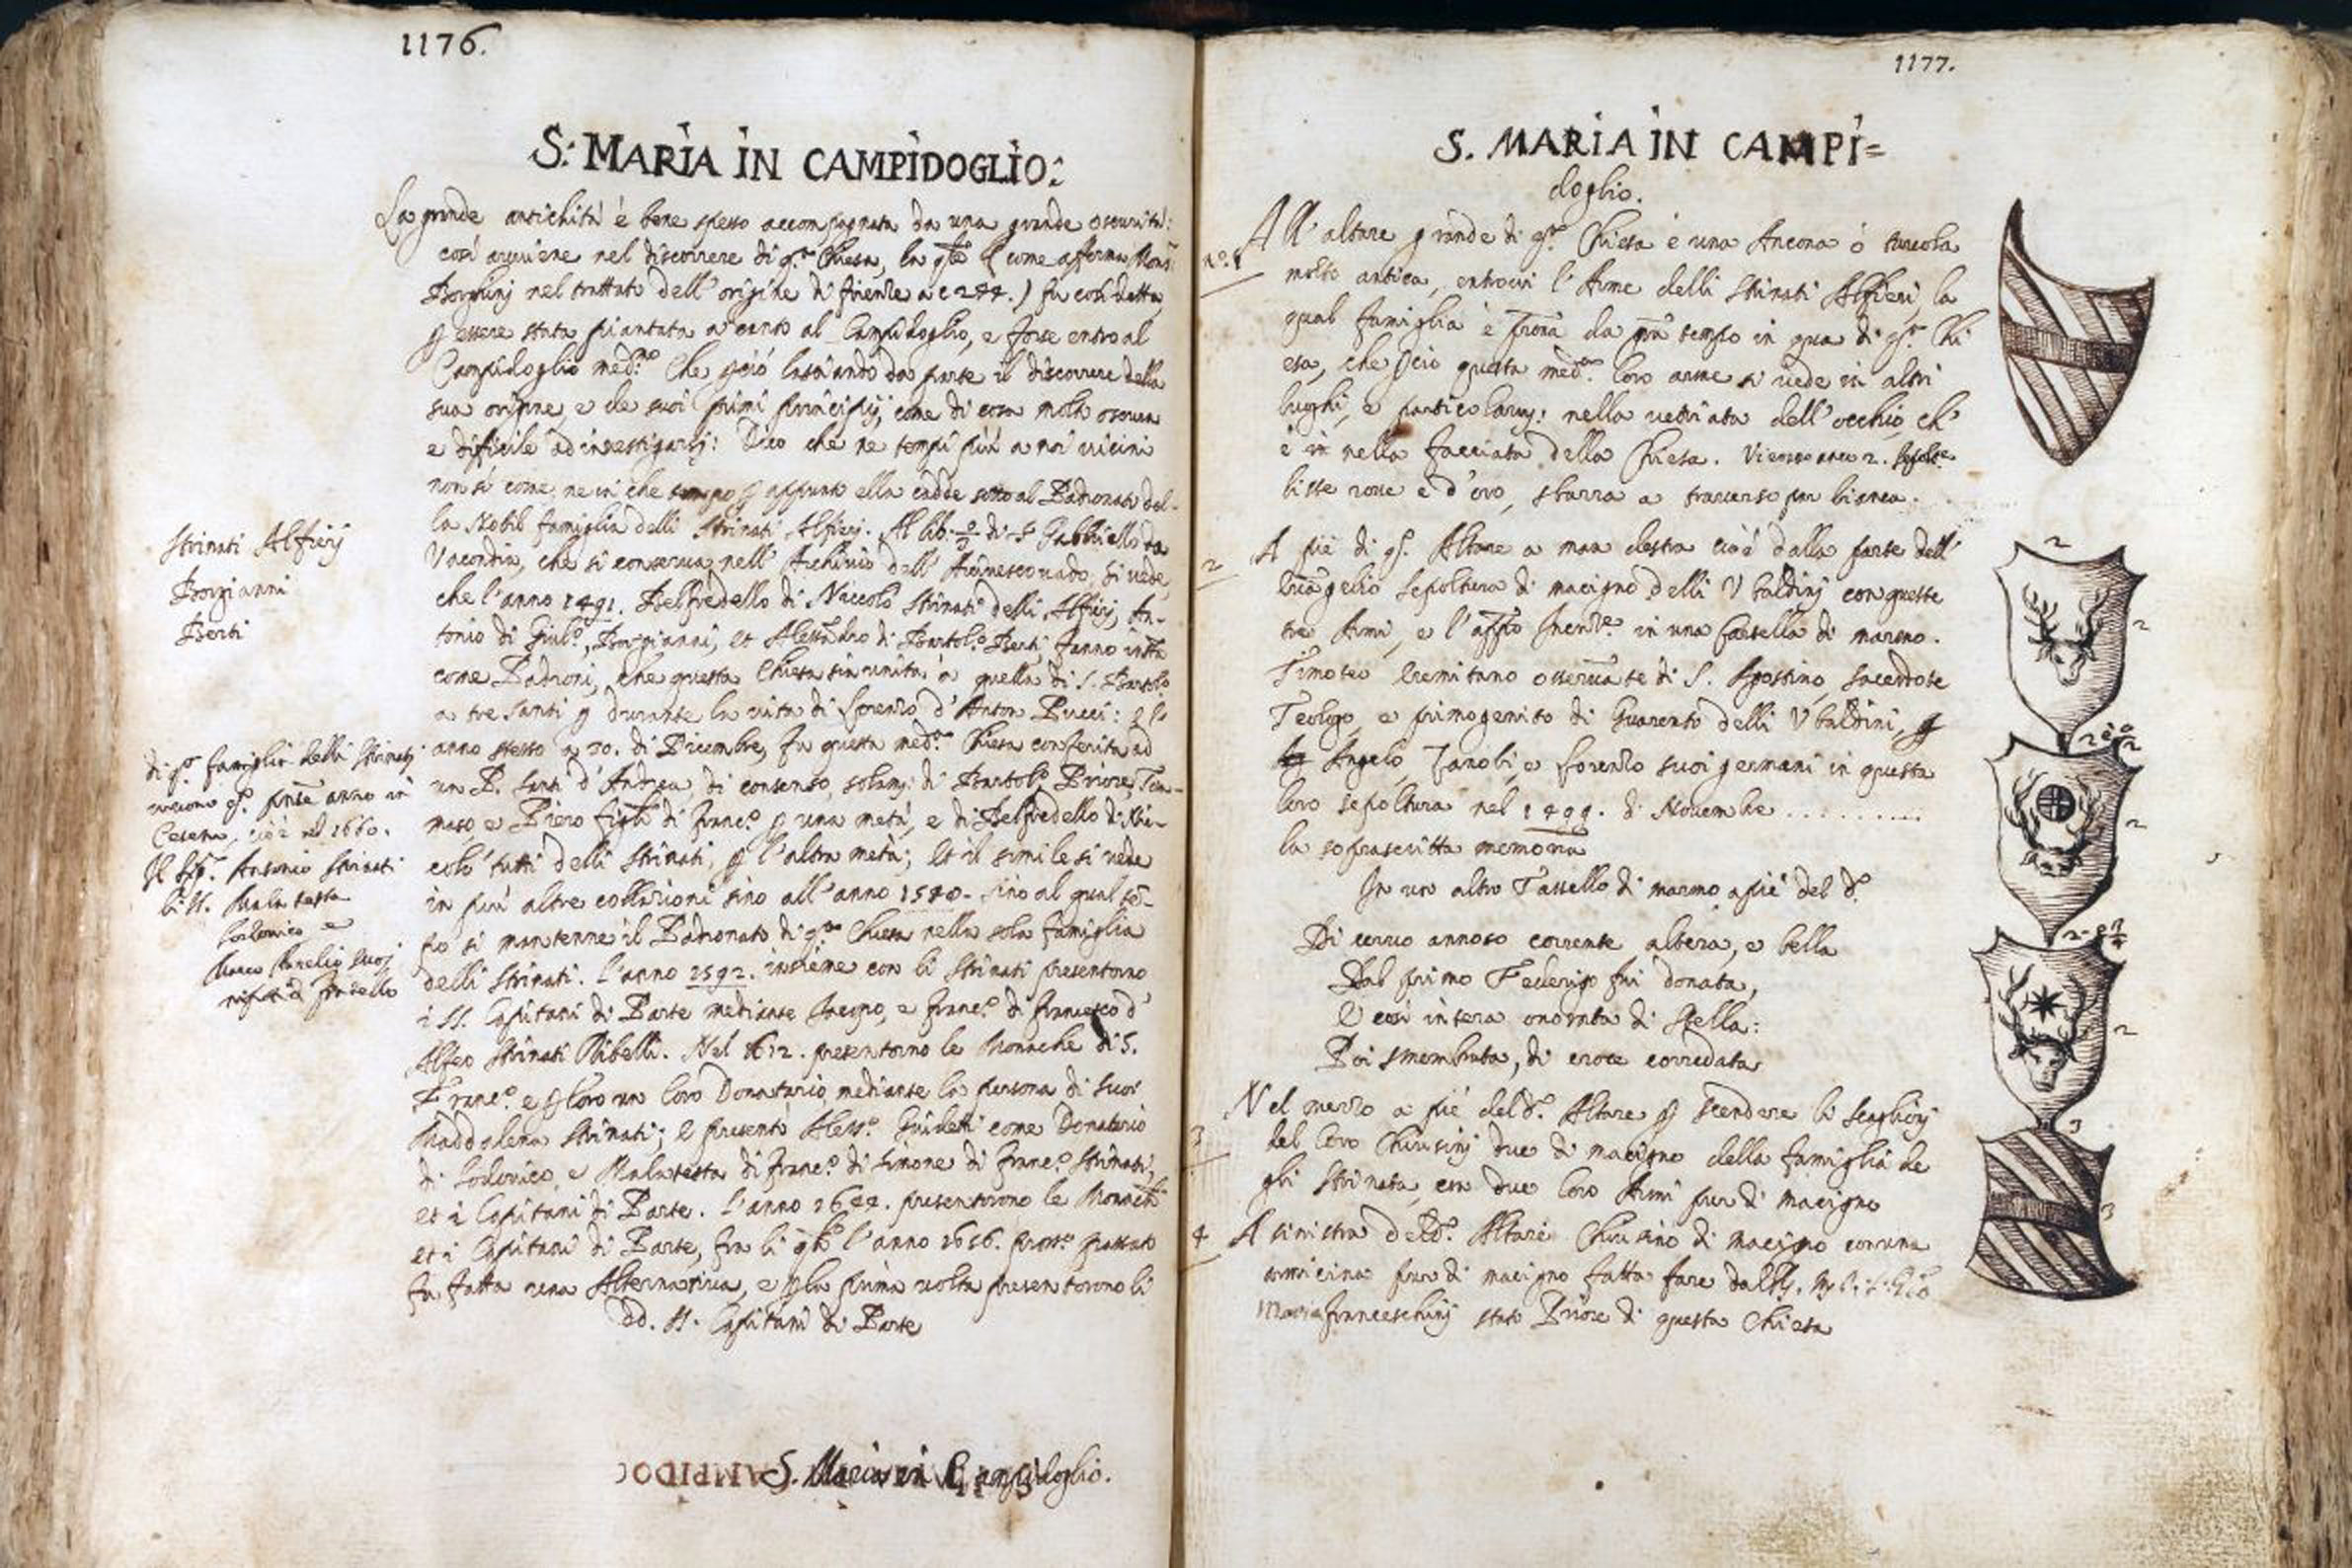 1176.
S: MARIA IN CAMPIDOGLIO:
La grande antichità è bene spesso accompagnata da una grande oscurità:
così avviene nel discorrere di q.ta Chiesa, la q.le ( come afferma Mons.
Borghinj nel trattato dell' origine di firenze a c 244. ) fu così detta
p essere stata piantata a canto al Campidoglio, e forse entro al
Campidoglio med.mo Che p ciò lasciando da parte il discorrere della
sua origine, e de suoi primi principij, come di cosa molto oscura
e difficile ad investigarsi: Dico che ne tempi più a noi vicini
non sò come, ne in che tempo p appunto ella cadde sotto al Padronato del-
la Nobil famiglia delli Strinati Alfieri. Al lib. di S Gabbriello da
che si conserva nell' Archivio dell' Arcivescovado, si vede,
che l'anno 1491. Belfredello di Niccolò Strinati delli Alfierj, An-
tonio di Giul.o, Borgianni, et Aless.dro di Bartol.o Berti fanno inst.a
come Padroni, che questa Chiesa sia unita à quella di S. Bartolo
a tre Santi p durante la vita di Lorenzo d' Anton Pucci: e l'
anno stesso a 20. di Dicembre, fu questa med.ma Chiesa conferita ad
un P. Santi d' Andrea di consenso solam: di Bartol.o Priore, Tom-
maso e Piero figli di Franc.o p una metà, e di Belfredello di Ni-
colò tutti delli Strinati, p l'altra metà; et il simile si vede
in più altre collazioni sino all' anno 1540. sino al qual tē-
po si mantenne il Padronato di q.ta Chiesa nella sola famiglia
delli Strinati. l'anno 1592. insieme con li Strinati presentorno
i SS. Capitani di Parte mediante e Franc.o di Francesco d'
Alfeo Strinati Ribelli. Nel 1612. presentorno le Monache di S.
Franc.o e p loro un loro Donatario mediante la persona di Suor
Maddalena Strinati; e presentò Aless.o Guidetti come Donatario
di Lodovico, e Malatesta di Franc.o di Simone di Franc.o Strinati,
et i Capitani di Parte. l'anno 1644. presentorono le Monache
et i Capitani di Parte, fra li q.li l'anno 1656. pross.o passato
fu fatta una Alternativa, e p la prima volta presentorono li
dd. SS. Capitani di Parte
Strinati Alfierj
Borgianni
Berti
di q.ta famiglia delli Strinati
vivono q.to pnte anno in
Cesena, cioè nel 1660.
Il Sig.r Antonio Strinati
li SS. Malatesta
Lodovico e
Marco Aurelio suoj
nipoti di fratello
S. Maria in Campidoglio.
1177.
S. MARIA IN CAMPI=
doglio.
n.o 1
All' altare grande di q.ta Chiesa è una Ancona ò tavola
molto antica, entrovi l' Arme delli Strinati Alfieri, la
qual famiglia è Prona da tempo in qua di q.ta Chi
esa, che p ciò questa med.ma loro arme si vede in altri
luoghi, e particolarm: nella vetriata dell' occhio, ch'
è in nella facciata della Chiesa.
liste rosse e d'oro, sbarra a traverso pur bianca.
2
A piè di q.to Altare a man destra cioè dalla parte dell'
Evāgelio sepoltura di macigno delli Vbaldinj con queste
tre Armi, e l' Inscriz.e in una Cartella di marmo.
Timoteo Eremitano osservāte di S. Agostino, sacerdote
Teologo, e primogenito di Guarento delli Vbaldini, p
Angelo, Zanobi, e Lorenzo suoi germani in questa
loro sepoltura nel 1499. di Novembre . . . . . . . . .
la soprascritta memoria
In un altro Tassello di marmo a piè del d.o
Di cervo annoso corrente altera, e bella
Dal primo Federigo fui donata,
E così intera ornata di stella:
Poi smembrata, di croce corredata
3
Nel mezzo a piè del d.o Altare p scendere li scaglionj
del Coro Chiusinj due di macigno della famiglia de
gli Strinata, con due loro Armi pur di macigno
4
A sinistra del d.o Altare Chiusino di macigno con una
armicina pur di macigno fatta fare dal
Maria franceschinj stato Priore di questa Chiesa
2
2
2
2
3
3